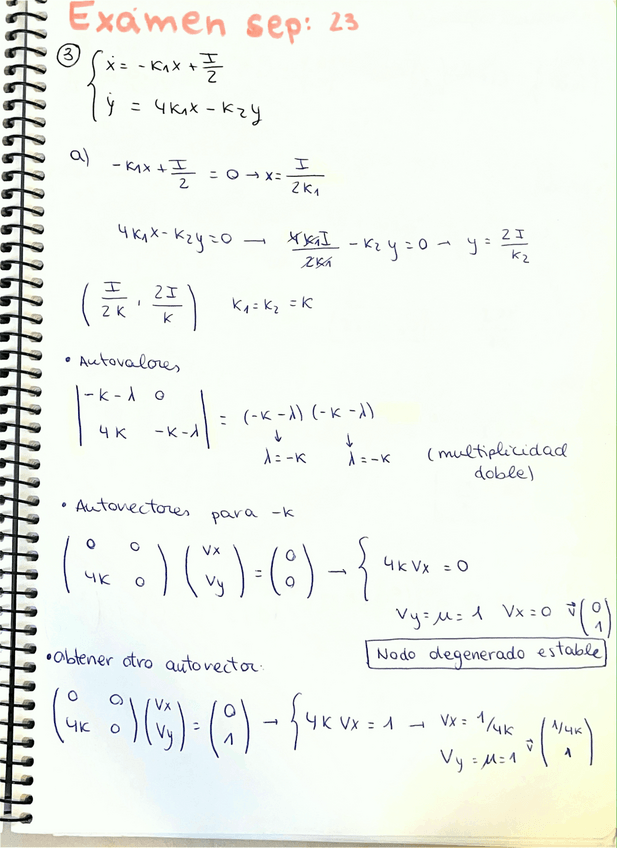 Exámen sep: 23
③ { ẋ = -K₁x + I/2
ẏ = 4K₁x - K₂y
a) -K₁x + I/2 = 0 → x = I/2K₁
4K₁x - K₂y = 0 → 4K₁I/2K₁ - K₂y = 0 → y = 2I/K₂
( I/2K , 2I/K ) K₁ = K₂ = K
• Autovalores
| -K-λ 0 |
| 4K -K-λ | = (-K-λ) (-K-λ)
↓ ↓
λ=-K λ=-K (multiplicidad
doble)
• Autovectores para -K
( 0 0 ; 4K 0 ) ( Vx ; Vy ) = ( 0 ; 0 ) → { 4K Vx = 0
Vy = μ = 1 Vx = 0 v⃗ ( 0 ; 1 )
Nodo degenerado estable
• Obtener otro autovector:
( 0 0 ; 4K 0 ) ( Vx ; Vy ) = ( 0 ; 1 ) → { 4K Vx = 1 → Vx = 1/4K
Vy = μ = 1 v⃗ ( 1/4K ; 1 )